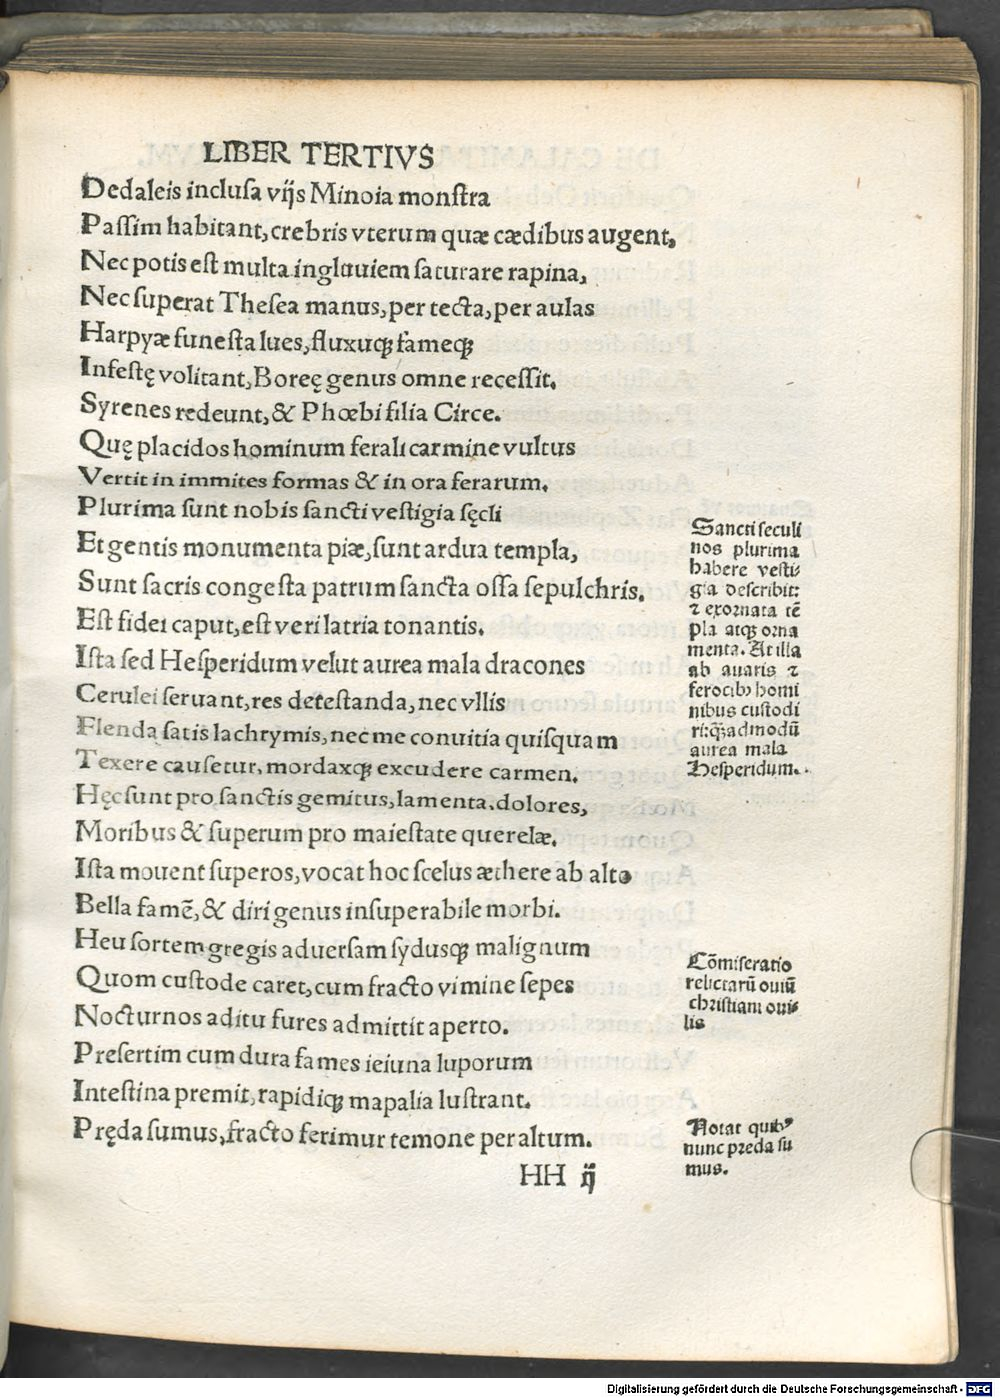 LIBER TERTIVS
Dedaleis inclusa vijs Minoia monstra
Passim habitant, crebris vterum quæ cædibus augent,
Nec potis est multa ingluuiem saturare rapina,
Nec superat Thesea manus, per tecta, per aulas
Harpyæ funesta lues, fluxuqꝫ fameqꝫ
Infestę volitant, Boreę genus omne recessit.
Syrenes redeunt, & Phœbi filia Circe.
Quę placidos hominum ferali carmine vultus
Vertit in immites formas & in ora ferarum.
Plurima sunt nobis sancti vestigia sęcli
Et gentis monumenta piæ, sunt ardua templa,
Sunt sacris congesta patrum sancta ossa sepulchris.
Est fidei caput, est veri latria tonantis.
Ista sed Hesperidum velut aurea mala dracones
Cerulei seruant, res detestanda, nec vllis
Flenda satis lachrymis, nec me conuitia quisquam
Texere causetur, mordaxqꝫ excudere carmen.
Hęc sunt pro sanctis gemitus, lamenta, dolores,
Moribus & superum pro maiestate querelæ.
Ista mouent superos, vocat hoc scelus æthere ab alto
Bella famē, & diri genus insuperabile morbi.
Heu sortem gregis aduersam sydusqꝫ malignum
Quom custode caret, cum fracto vimine sepes
Nocturnos aditu fures admittit aperto.
Presertim cum dura fames ieiuna luporum
Intestina premit, rapidiqꝫ mapalia lustrant.
Pręda sumus, fracto ferimur temone per altum.
HH ij
Sancti seculi
nos plurima
habere vesti⸗
gia describit:
⁊ exornata tē
pla atqꝫ orna
menta. At illa
ab auaris ⁊
ferocibꝰ homi
nibus custodi
ri: qꝫadmodū
aurea mala
Hesperidum.
Cōmiseratio
relictarū ouiū
christiani oui⸗
lis
Notat quibꝰ
nunc preda su
mus.
Digitalisierung gefördert durch die Deutsche Forschungsgemeinschaft - DFG